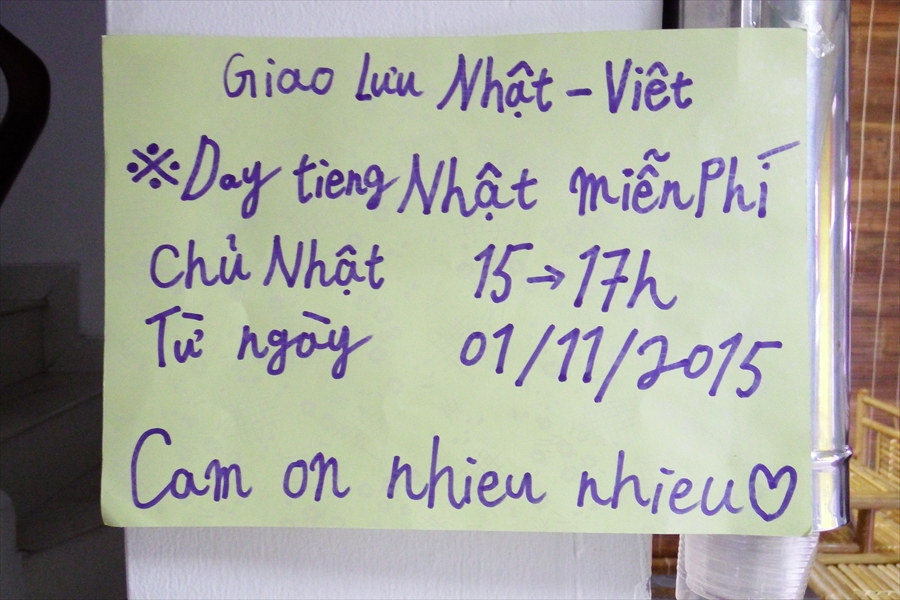 Giao Lưu Nhật - Viêt
※Day tiếng Nhật miễn Phí
Chủ Nhật 15→17h
Từ ngày 01/11/2015
Cam on nhieu nhieu♡